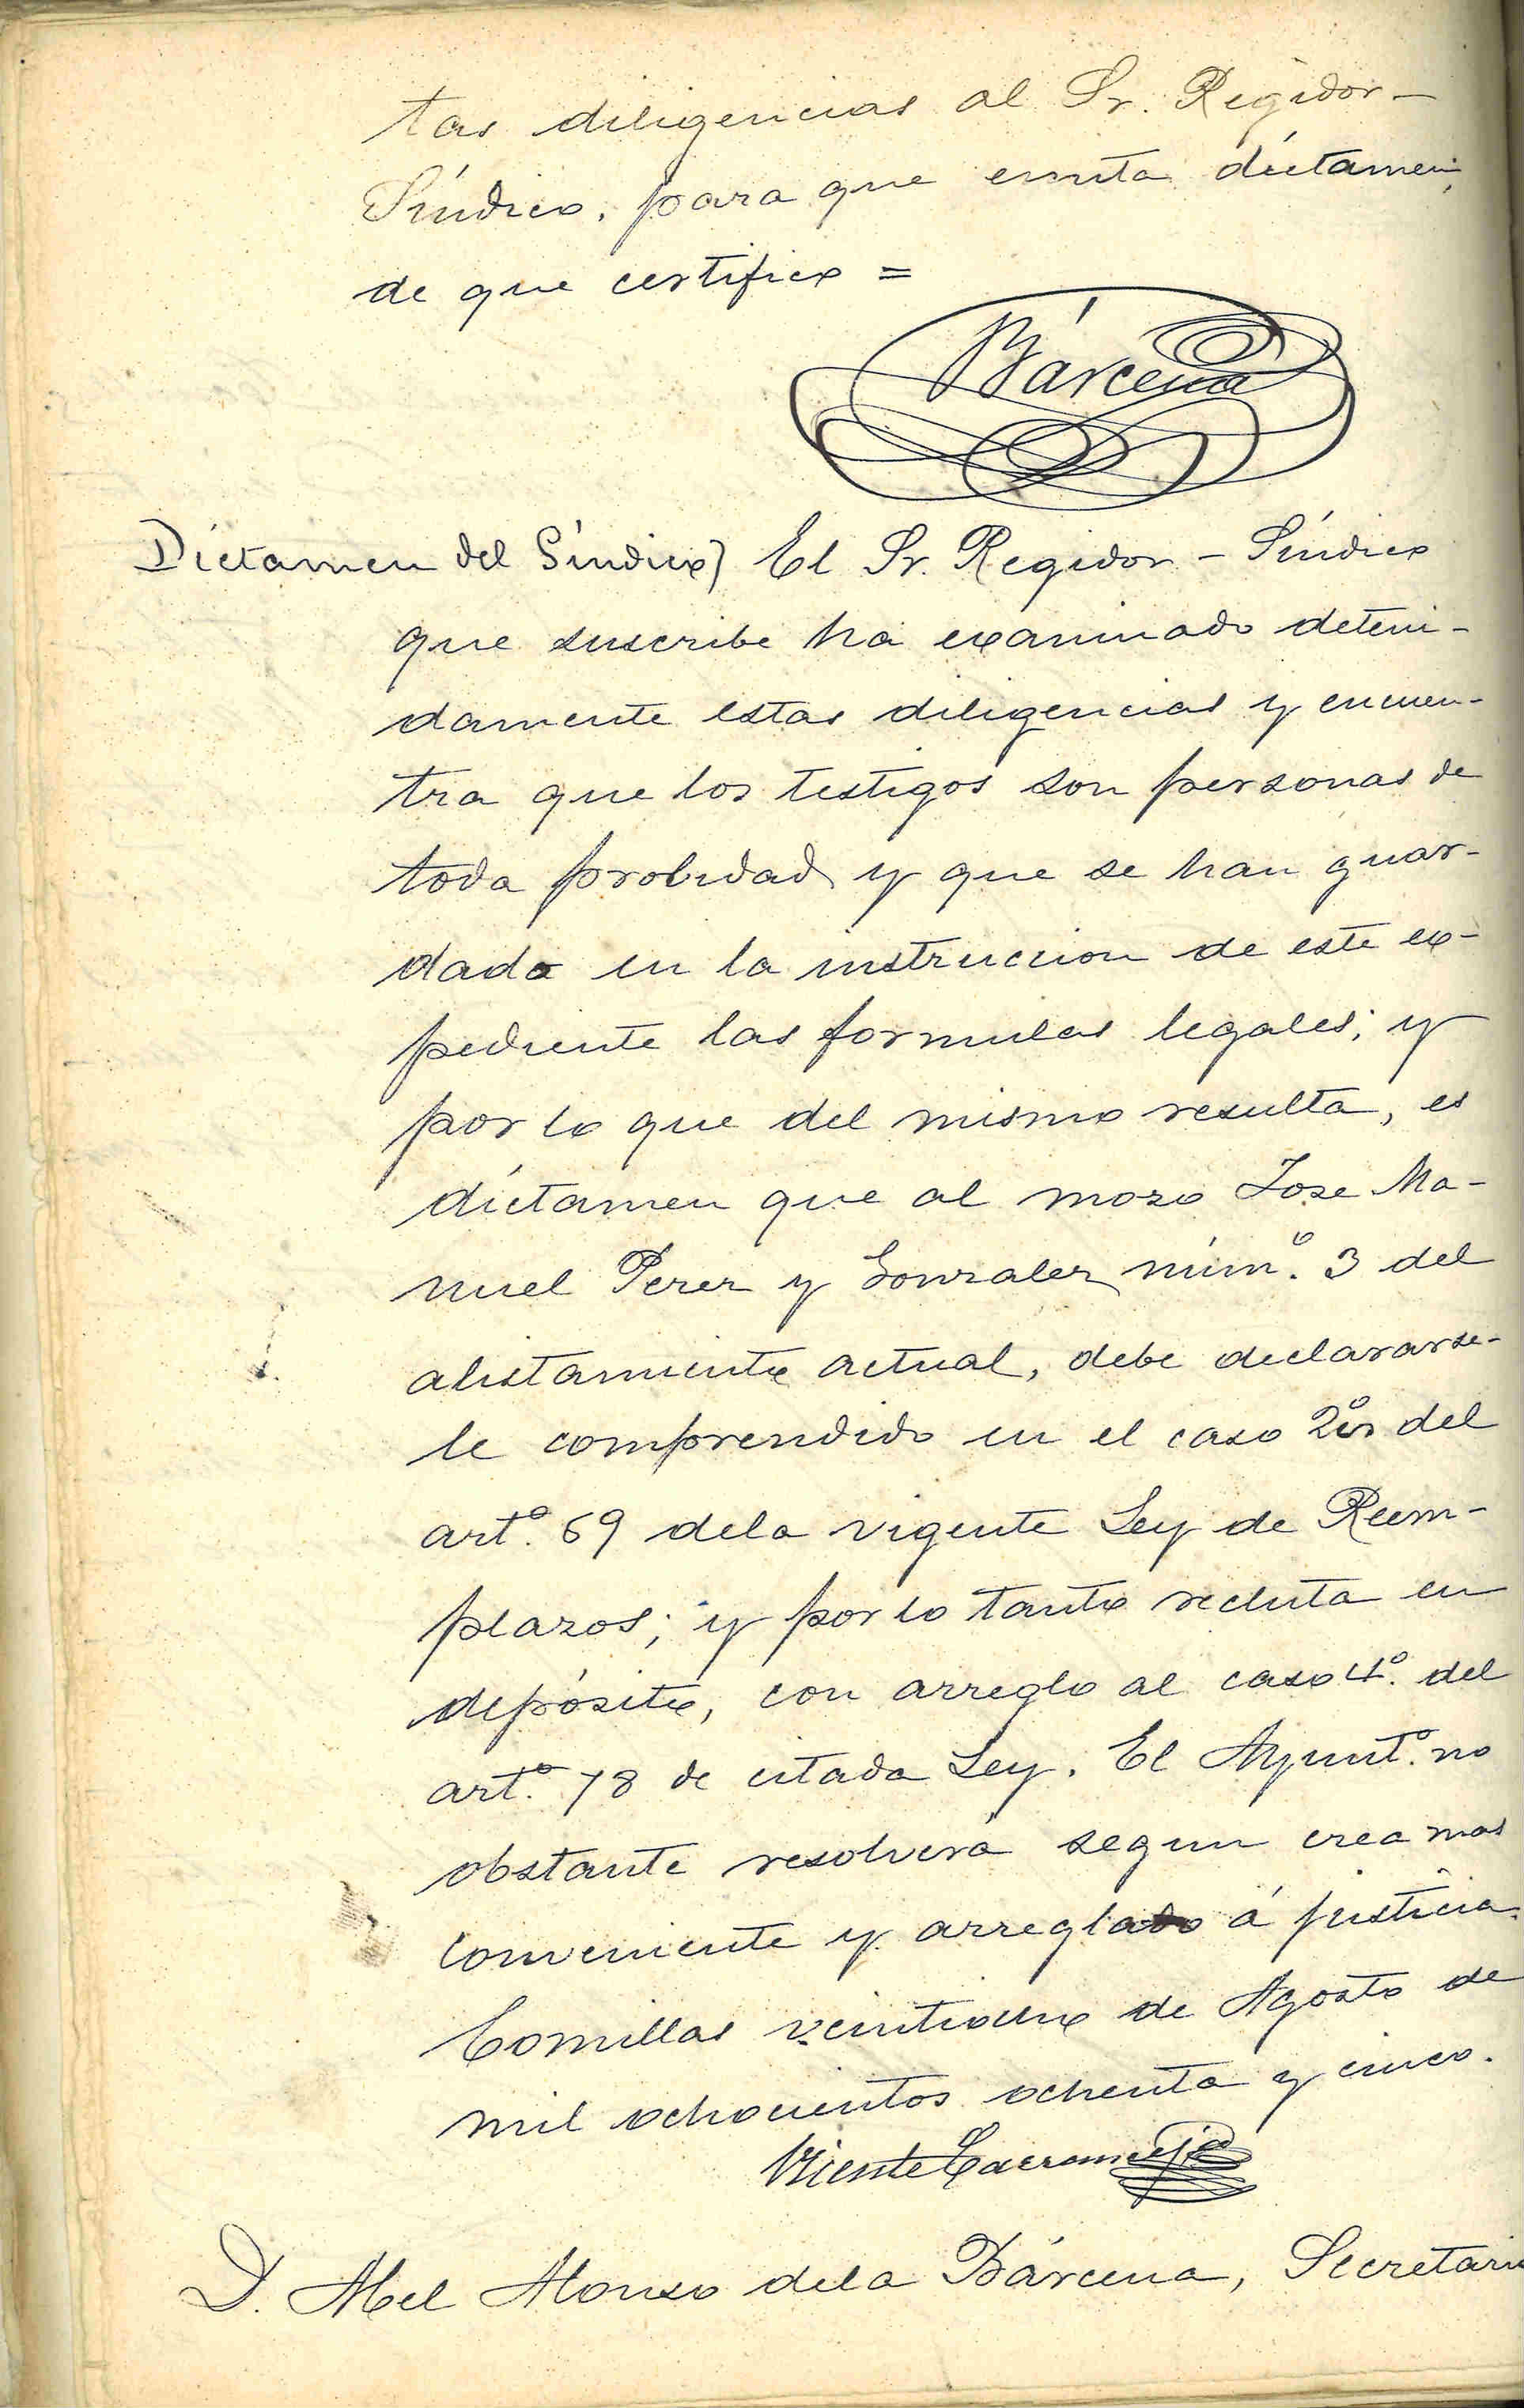 tas diligencias al Sr. Regidor-
Síndico, para que emita dictamen,
de que certifico =
Bárcena
Dictamen del Síndico) El Sr. Regidor-Síndico
que suscribe ha examinado deteni-
damente estas diligencias y encuen-
tra que los testigos son personas de
toda probidad y que se han guar-
dado en la instruccion de este ex-
pediente las formulas legales; y
por lo que del mismo resulta, es
dictamen que al mozo Jose Ma-
nuel Perez y Gonzalez núm.º 3 del
alistamiento actual, debe declararse-
le comprendido en el caso 2º del
art.º 69 dela vigente Ley de Reem-
plazos; y por lo tanto recluta en
depósito, con arreglo al caso 4.º del
art.º 78 de citada Ley. El Ayunt.º no
obstante resolverá segun crea mas
conveniente y arreglado á justicia.
Comillas veintiuno de Agosto de
mil ochocientos ochenta y cinco.
Vicente
D. Abel Alonso dela Bárcena, Secretario